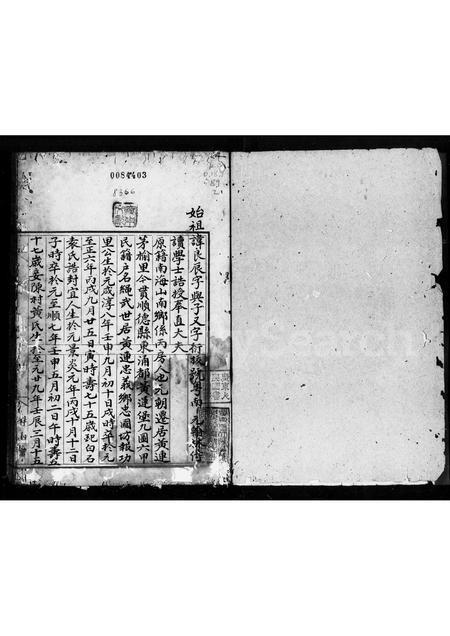 0084403
8366
始祖諱良辰字與子又字衍
讀學士誥授奉直大夫
原籍南海山南鄉係丙房人也元朝遷居黃連
茅榆里今貫順德縣東涌都黃連堡九圖六甲
民籍户名 武世居黃連忠義鄉忠圖坊報功
里公生於元咸淳八年壬申九月初十日戌時卒於元
至正六年丙戌九月廿五日寅時壽七十五歲配白石
袁氏誥封宜人生於元景炎元年丙戌十月十二日
子時卒於元至順七年壬申五月初二日午時壽五
十七歲妾陳村黃氏生於至元廿九年壬辰三月十五